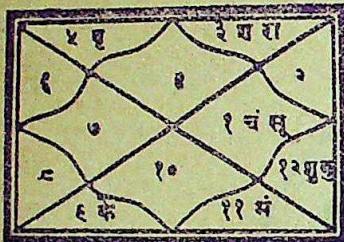 ५ वृ ३ श रा
६ ४ २
७ १ चं सू
८ १० १२ शु बु
९ के ११ मं